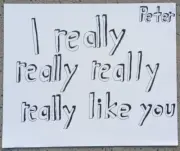 Peter
I really
really really
really like you